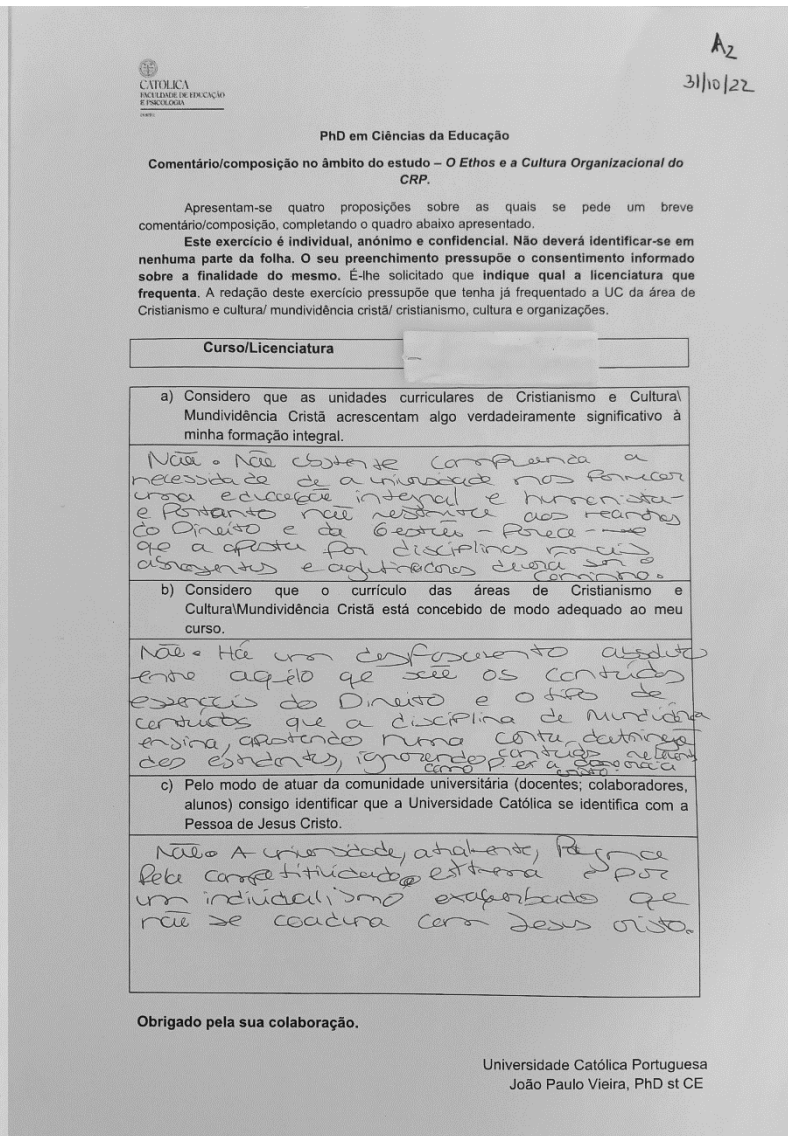 A2
31/10/22
CATOLICA
FACULDADE DE EDUCAÇÃO
E PSICOLOGIA
PORTO
PhD em Ciências da Educação
Comentário/composição no âmbito do estudo – O Ethos e a Cultura Organizacional do
CRP.
Apresentam-se quatro proposições sobre as quais se pede um breve
comentário/composição, completando o quadro abaixo apresentado.
Este exercício é individual, anónimo e confidencial. Não deverá identificar-se em
nenhuma parte da folha. O seu preenchimento pressupõe o consentimento informado
sobre a finalidade do mesmo. É-lhe solicitado que indique qual a licenciatura que
frequenta. A redação deste exercício pressupõe que tenha já frequentado a UC da área de
Cristianismo e cultura/ mundividência cristã/ cristianismo, cultura e organizações.
Curso/Licenciatura
a) Considero que as unidades curriculares de Cristianismo e Cultura\
Mundividência Cristã acrescentam algo verdadeiramente significativo à
minha formação integral.
Não. Não obstante compreenda a
necessidade de a universidade nos fornecer
uma educação integral e humanista -
e portanto não restrita aos meandros
do Direito e da Gestão - parece-me
que a aposta por disciplinas mais
abrangentes e aglutinadoras devera ser o
caminho.
b) Considero que o currículo das áreas de Cristianismo e
Cultura\Mundividência Cristã está concebido de modo adequado ao meu
curso.
Não. Há um desfasamento absoluto
entre aquilo que são os conteúdos
essenciais do Direito e o tipo de
conteúdos que a disciplina de
ensina, apostando numa certa doutrinação
dos estudantes, ignorando conteúdos
como
c) Pelo modo de atuar da comunidade universitária (docentes; colaboradores,
alunos) consigo identificar que a Universidade Católica se identifica com a
Pessoa de Jesus Cristo.
Não. A universidade, atualmente,
pela competitividade extrema e por
um individualismo exacerbado que
não se coaduna com Jesus Cristo.
Obrigado pela sua colaboração.
Universidade Católica Portuguesa
João Paulo Vieira, PhD st CE